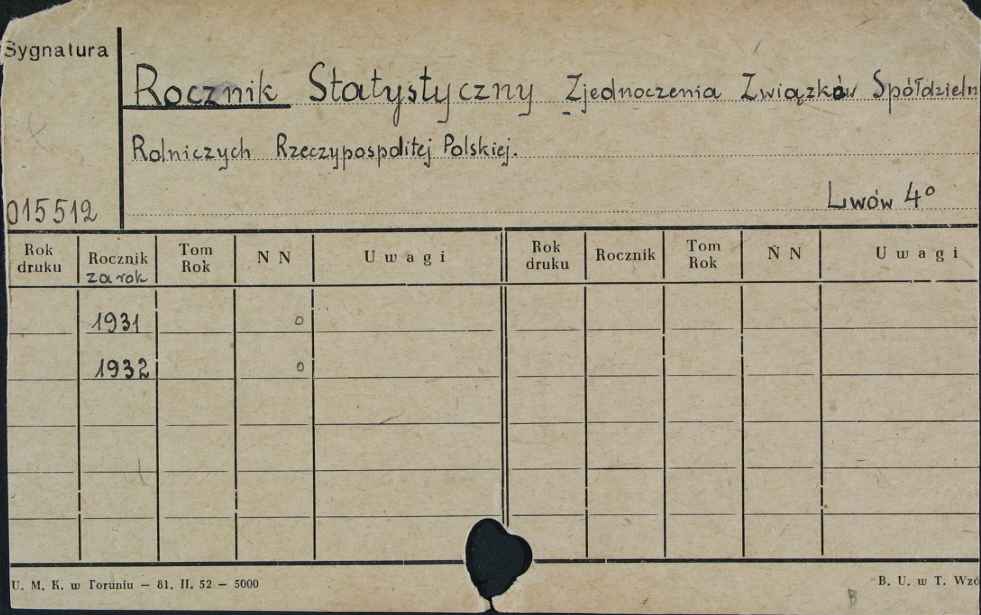 Sygnatura
Rocznik Statystyczny Zjednoczenia Związków Spółdzieln
Rolniczych Rzeczypospolitej Polskiej.
015512 Lwów 4º
Rok druku Rocznik za rok Tom Rok N N Uwagi Rok druku Rocznik Tom Rok N N Uwagi
1931 0
1932 0
U. M. K. w Toruniu — 81. II. 52 — 5000 B. U. w T. Wzó
B